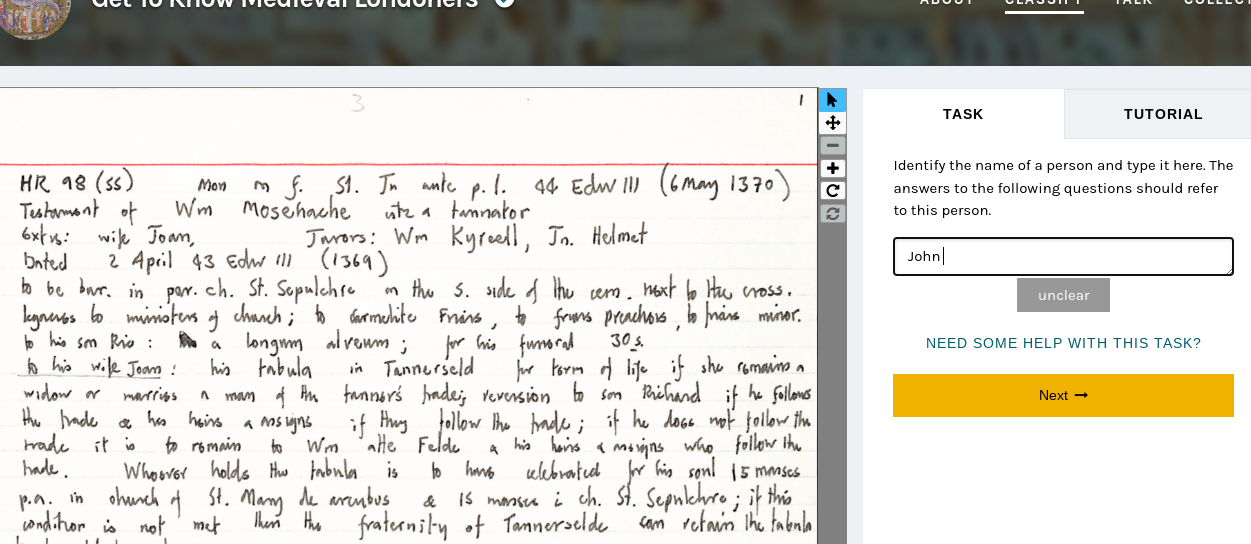 Get To Know Medieval Londoners
ABOUT CLASSIFY TALK COLLECT
3
1
HR 98 (55) Mon n f. St. Jn ante p. l. 44 Edw III (6 May 1370)
Testament of Wm Mosehache citz & tannator
Extrs: wife Joan, Jurors: Wm Kyrell, Jn. Helmet
Dated 2 April 43 Edw III (1369)
to be bur. in par. ch. St. Sepulchre on the S. side of the cem. next to the cross.
legacies to ministers of church; to Carmelite Friars, to friars preachers, to friars minor.
to his son Ric: a longum alveum; for his funeral 30s.
to his wife Joan: his tabula in Tannerseld for term of life if she remains a
widow or marries a man of the tanner's trade; reversion to son Richard if he follows
the trade & his heirs & assigns if they follow the trade; if he does not follow the
trade it is to remain to Wm atte Felde & his heirs & assigns who follow the
trade. Whoever holds the tabula is to have celebrated for his soul 15 masses
p.a. in church of St. Mary de arcubus & 15 masses i ch. St. Sepulchre; if this
condition is not met then the fraternity of Tannerselde can retain the tabula
TASK
TUTORIAL
Identify the name of a person and type it here. The
answers to the following questions should refer
to this person.
John
unclear
NEED SOME HELP WITH THIS TASK?
Next